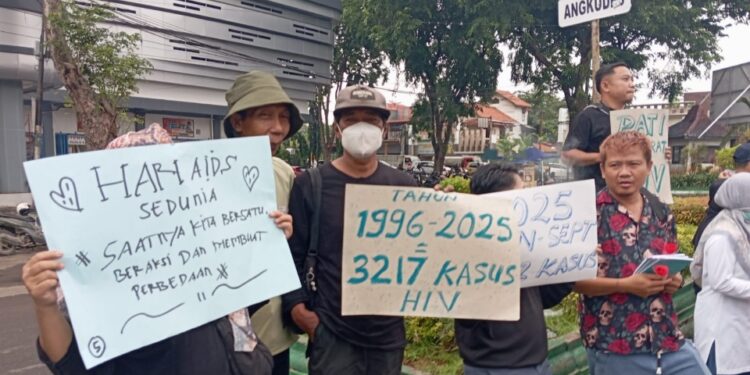 ANGKUDES
HARI AIDS
SEDUNIA
* SAATNYA KITA BERSATU
BERAKSI DAN MEMBUAT
PERBEDAAN *
5
TAHUN
1996-2025
=
3217 KASUS
HIV
2025
N-SEPT
KASUS
PATI